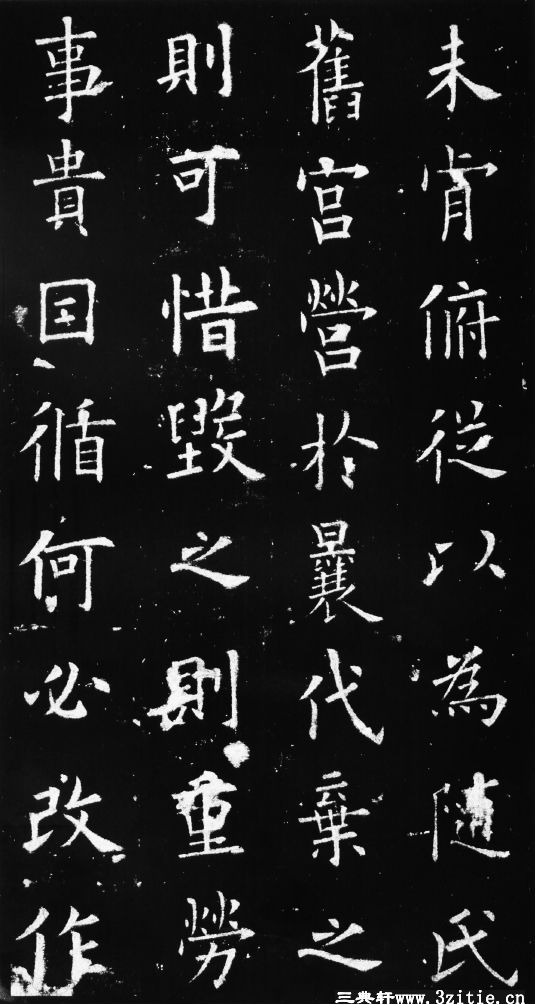 未肯俯從以為隨氏
舊宮營於曩代棄之
則可惜毀之則重勞
事貴因循何必改作
三典軒www.3zitie.cn